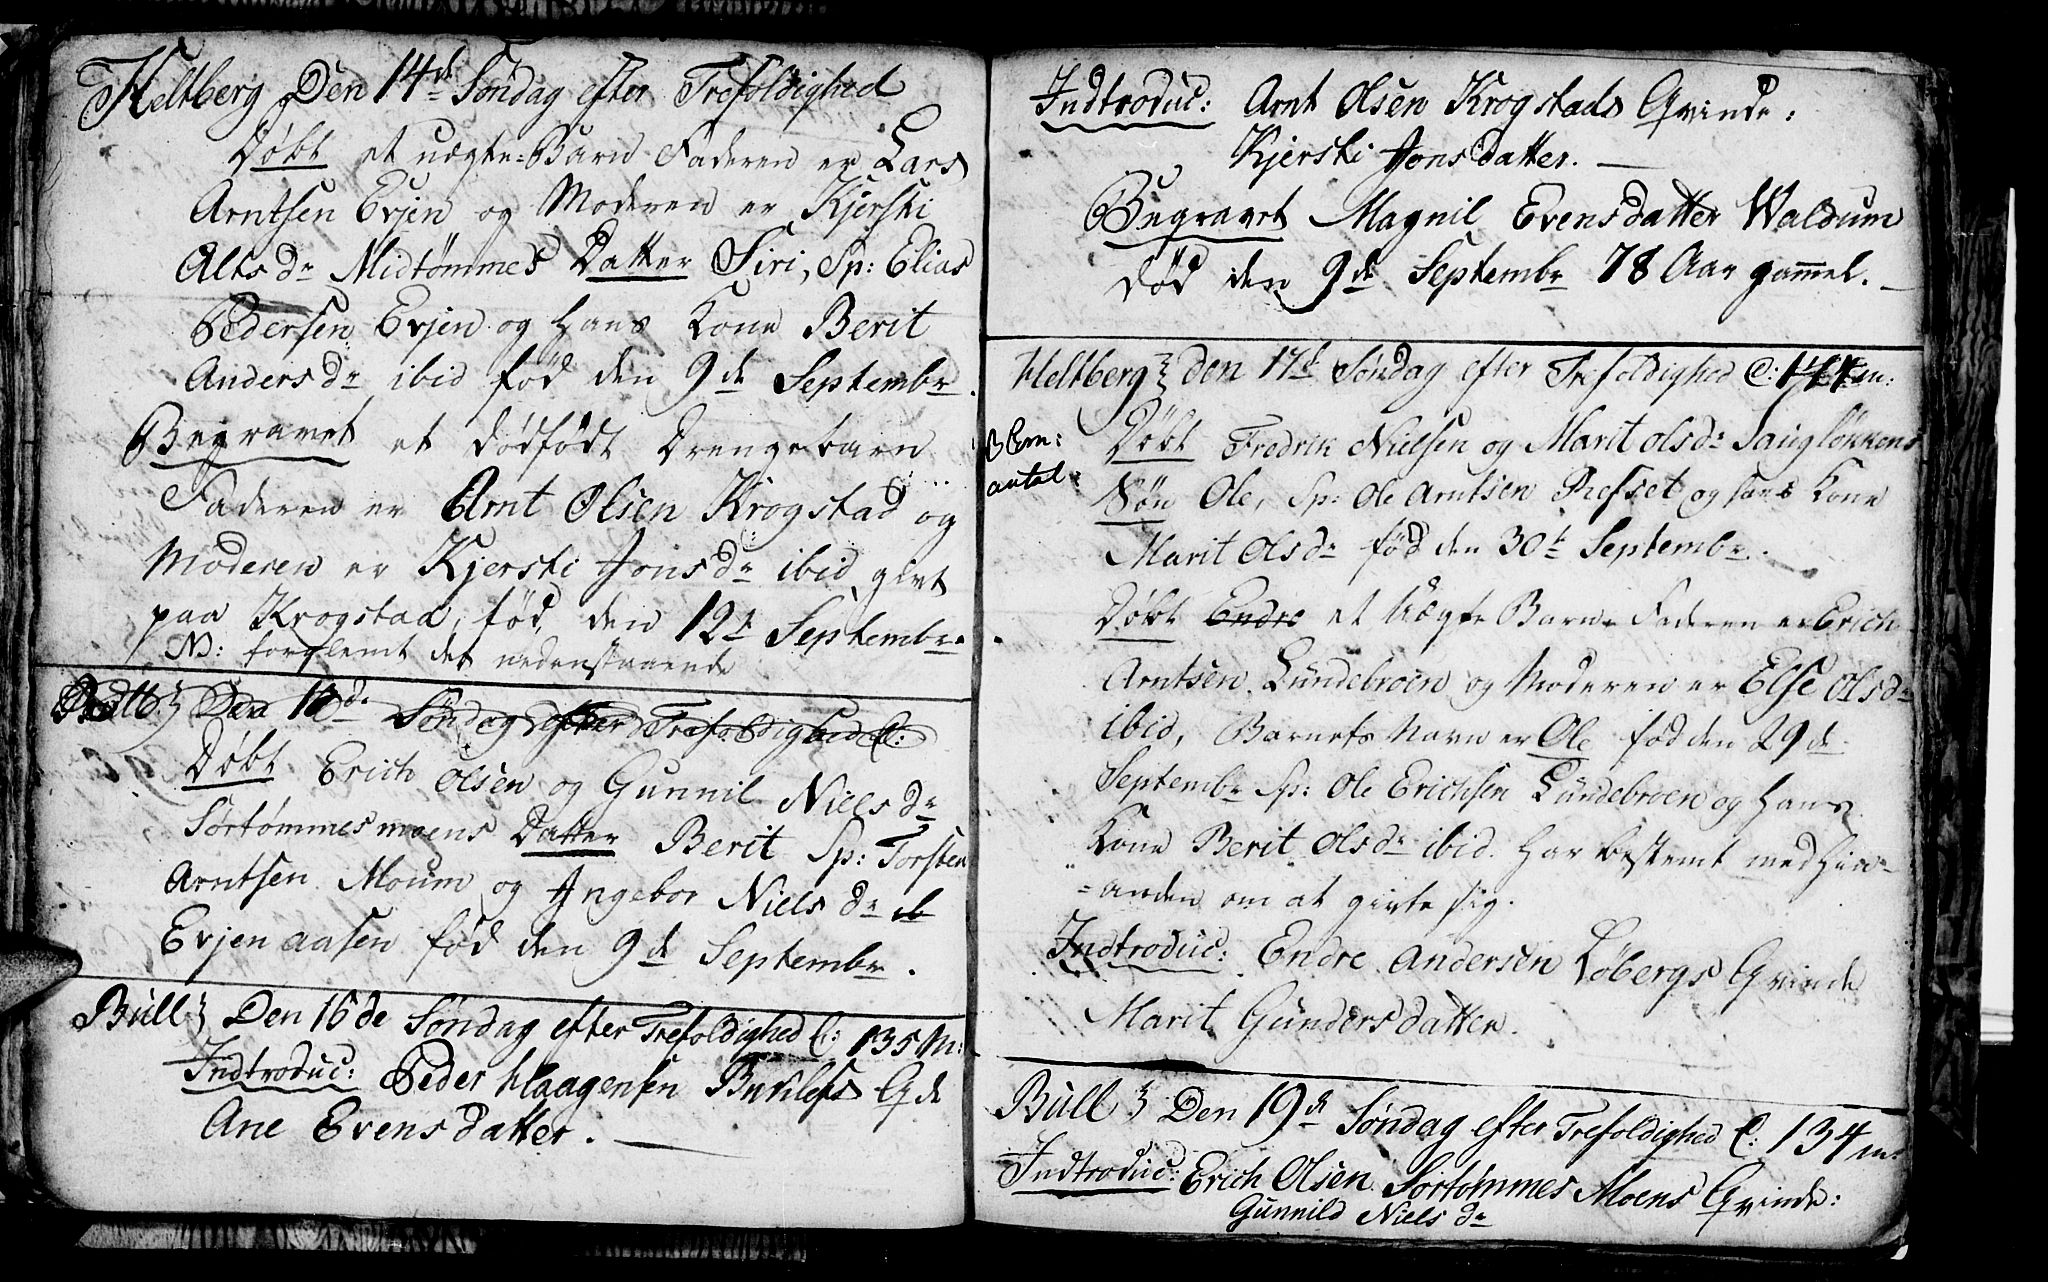 Heltberg Den 14de Søndag efter Trefoldighed
Døbt et uægte-Barn Faderen er Lars
Arntsen Evjen og Moderen er Kjersti
Altsdr Midtømmes Datter Siri, Sp: Elias
Pedersen Evjen og Hans Kone Berit
Andersdr ibid fød den 9de Septembr.
Begravet et dødfødt Drengebarn
Faderen er Arnt Olsen Krogstad og
Moderen er Kjersti Jonsdr ibid givt
paa Krogstad, fød den 12te Septembr.
NB: forglemt det nedenstaaende
Den 16de Søndag efter Trefoldighed C:
Døbt Erich Olsen og Gunnil Nielsdr
Sørtømmesmoens Datter Berit Sp: Torsten
Arntsen Moum og Ingebor Nielsdr ib
Evjenaasen fød den 9de Septembr.
Bull Den 16de Søndag efter Trefoldighed C: 135 M:
Indtroduc: Peder Haagensen Gde
Ane Evensdatter.
Indtroduc: Arnt Olsen Krogstads Qvinde:
Kjersti Jonsdatter.
Begravet Magnil Evensdatter Waldum
død den 9de Septembr 78 Aar gammel.
Heltberg den 17de Søndag efter Trefoldighed C: m:
Com:
antal:
Døbt Fredrik Nielsen og Marit Olsdr Saugløkkens
Søn Ole, Sp: Ole Arntsen Refset og hans Kone
Marit Olsdr fød den 30te Septembr.
Døbt Endre et Uægte Barn Faderen er Erich
Arntsen Lundebroen og Moderen er Else Olsdr
ibid, Barnets Navn er Ole fød den 29de
Septembr Sp: Ole Erichsen Lundebroen og Hans
Kone Berit Olsdr ibid. Har bestemt med hin-
-anden om at givte sig.
Indtroduc: Endre Andersen Løbergs Qvinde
Marit Gundersdatter.
Bull Den 19de Søndag efter Trefoldighed C: 134 m:
Indtroduc: Erich Olsen Sørtømmes Moens Qvinde:
Gunnild Nielsdr